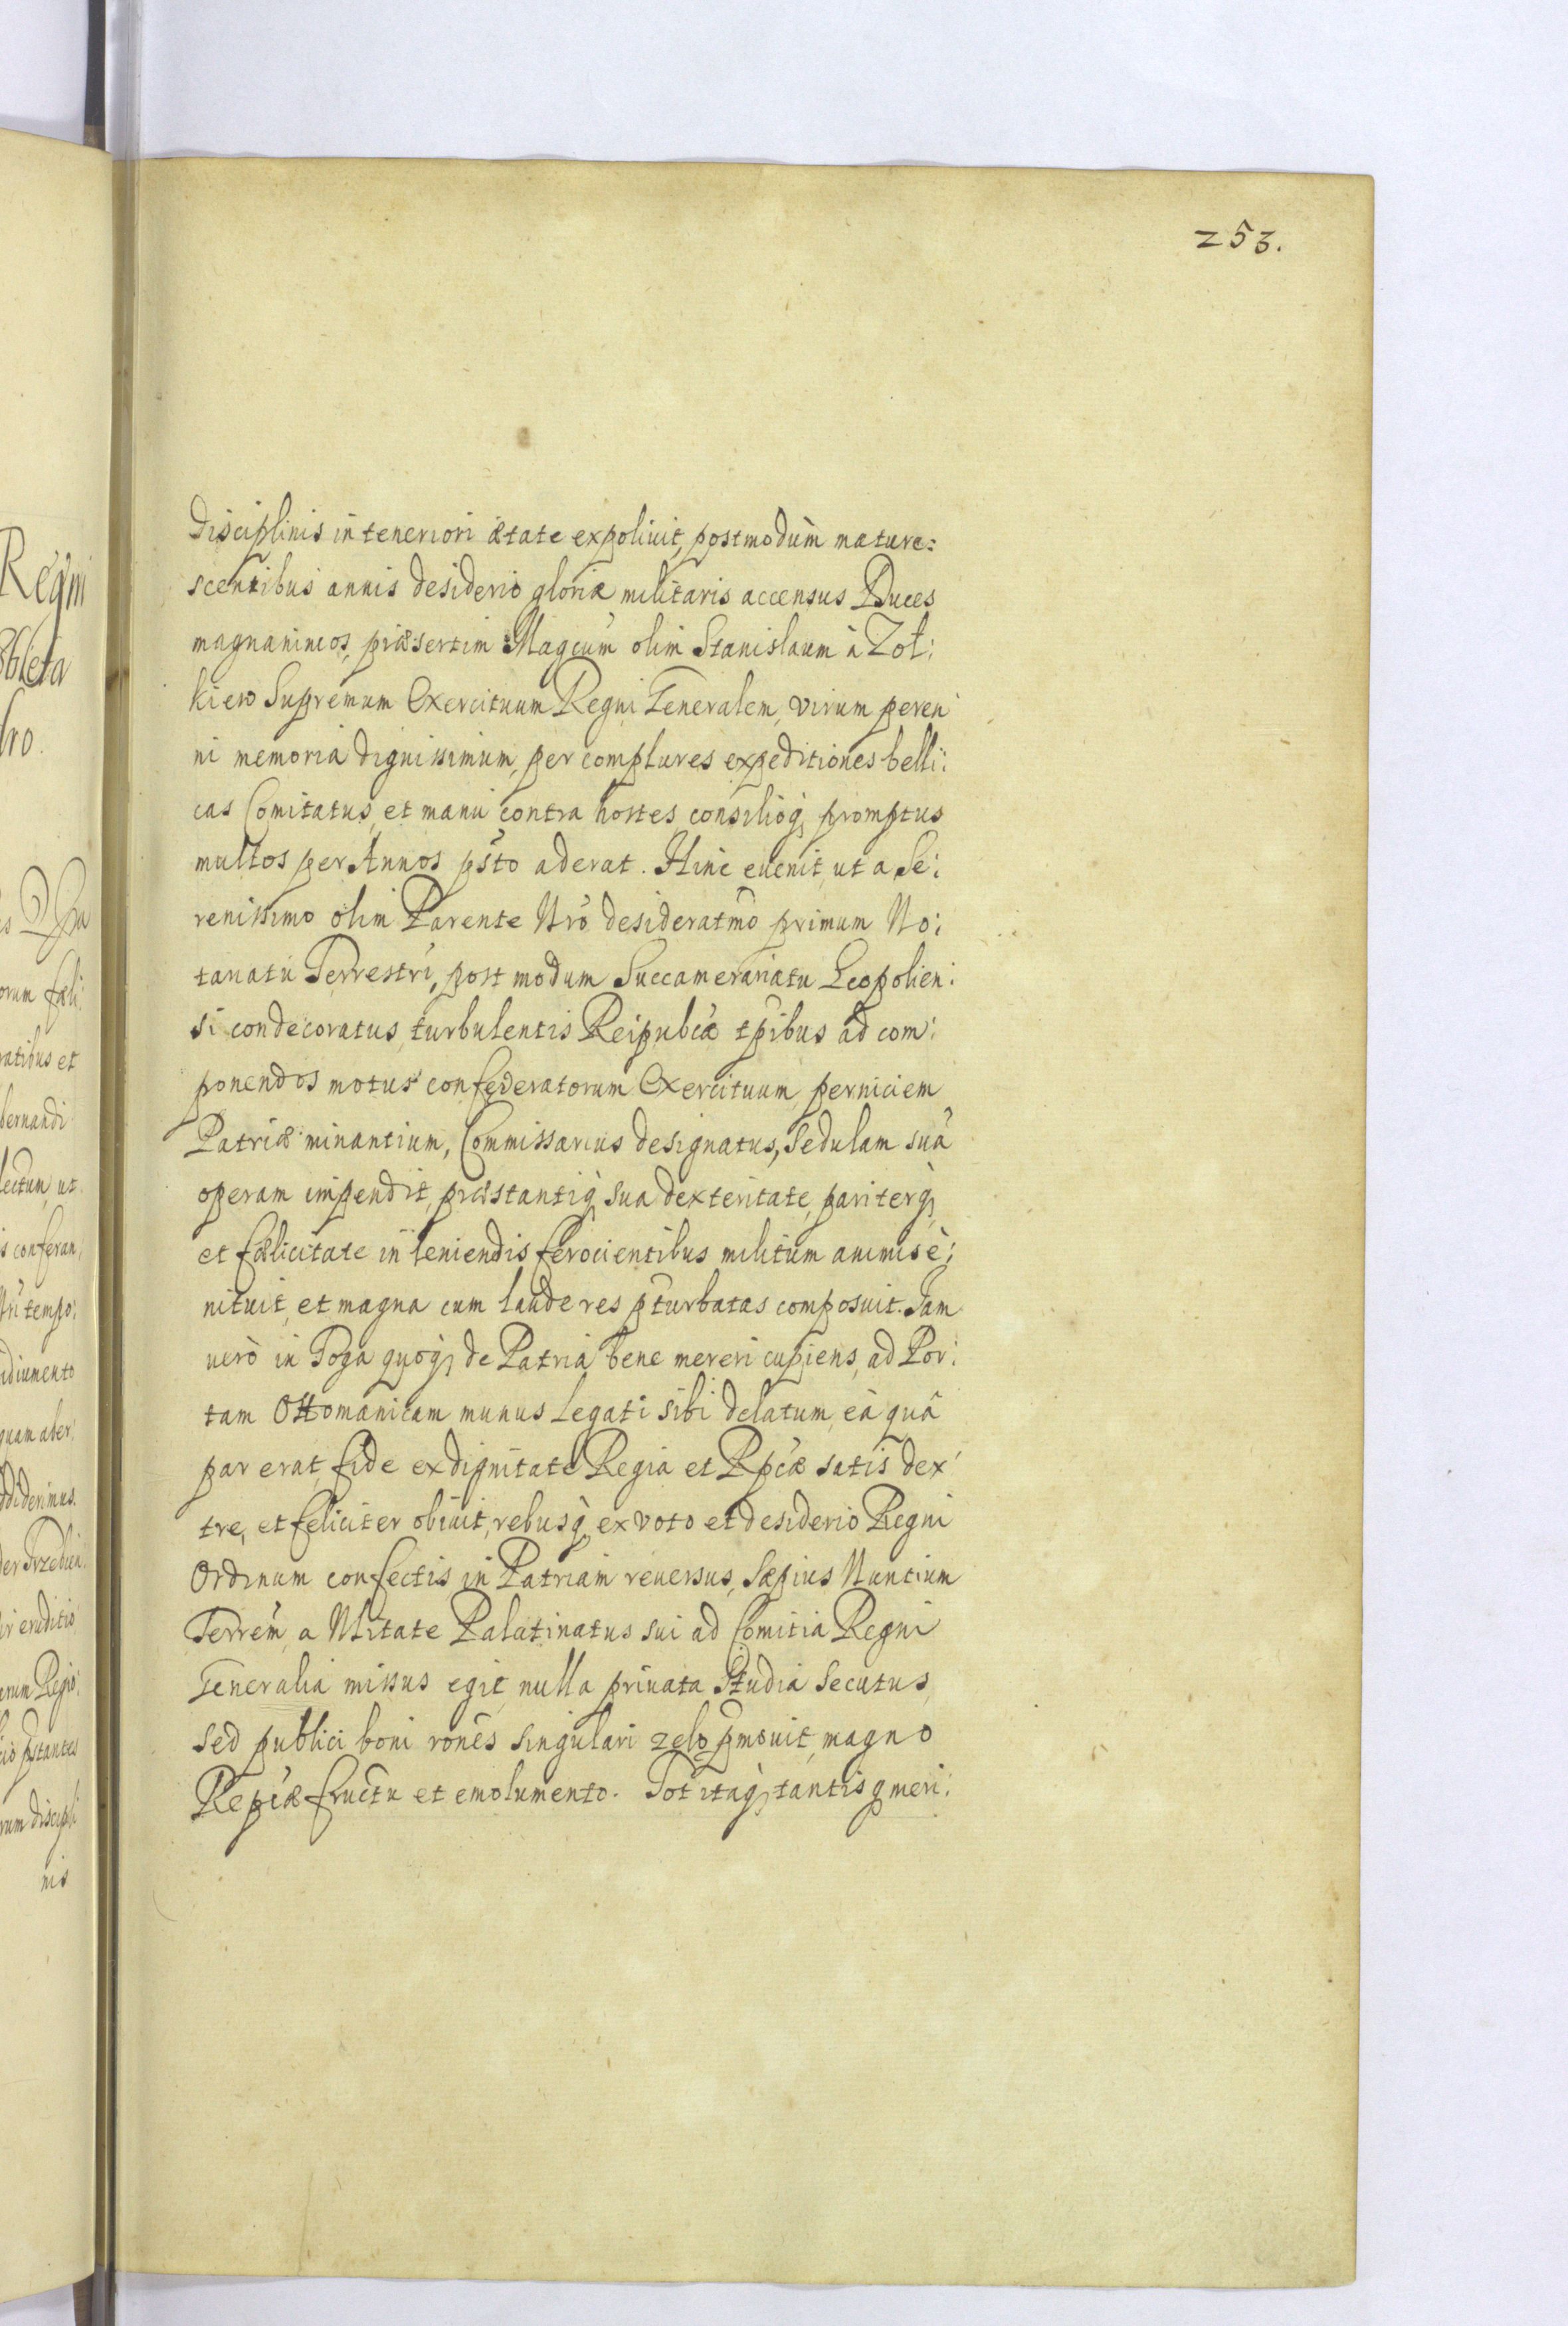 253.
Disciplinis in teneriori ætate expoliuit, postmodùm mature:
scentibus annis desiderio gloriæ militaris accensus Duces
magnanimos, præsertim Magcum olim Stanislaum à Zoł:
kiew Supremum Exercituum Regni Generalem, virum peren
ni memoria dignissimum, per complures expeditiones belli:
cas Comitatus, et manu contra hostes consilioq; promptus
multos per Annos psto aderat. Hinc euenit, ut a Se:
renissimo olim Parente Nro desideratmo primum No:
tariatu Terrestri, post modum Succamerariatu Leopolien:
si condecoratus, turbulentis Reipubcæ tpibus ad com:
ponendos motus confederatorum Exercituum, perniciem
Patriæ minantium, Commissarius designatus, sedulam suã
operam impendit, præstantiq; sua dexteritate, pariterq;
et fælicitate in leniendis ferocientibus militum animis è:
nituit, et magna cum laude res pturbatas composuit. Iam
uerò in Toga quoq; de Patria bene mereri cupiens, ad Por:
tam Ottomanicam munus Legati sibi delatum, eà quâ
par erat, fide ex dignitate Regia et Rpcæ satis dex
tre, et feliciter obiuit, rebusq; ex voto et desiderio Regni
Ordinum confectis, in Patriam reuersus, sæpius Nuntium
Terrem a Nlitate Palatinatus sui ad Comitia Regni
Generalia missus egit, nulla priuata Studia secutus,
sed publici boni rones singulari zelo pmouit, magno
Reipcæ fructu et emolumento. Tot itaq; tantisq meri:
Regni
nis
ratibus et
quam aber